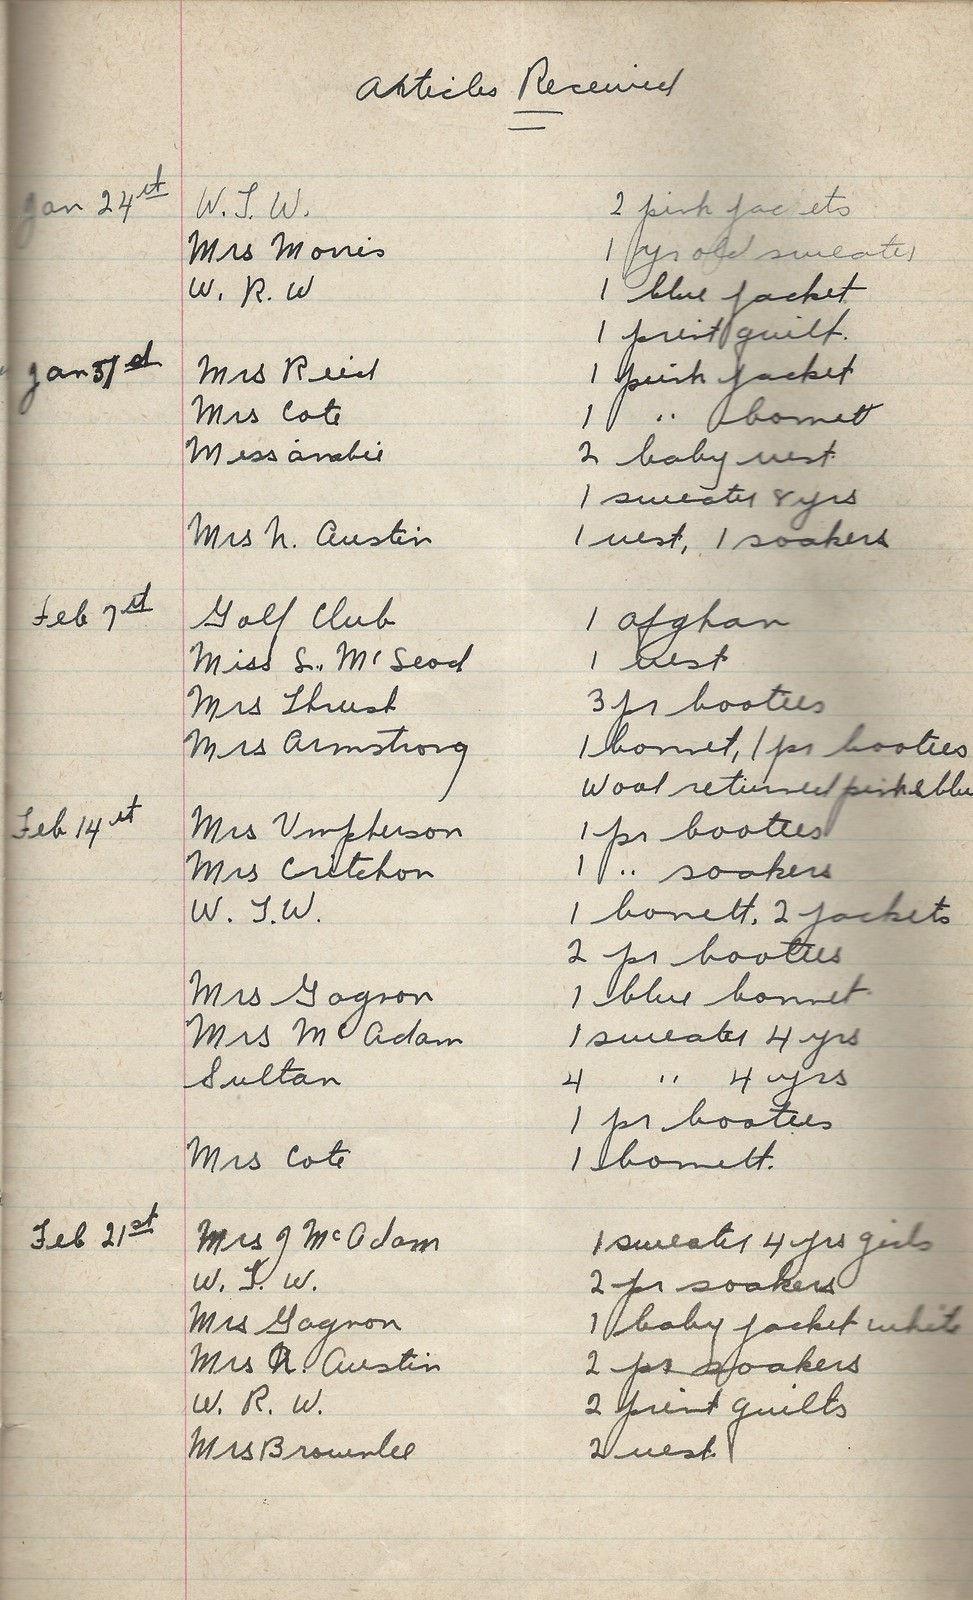 Articles Received
Jan 24st W. I. W. 2 pink jackets
Mrs Morris 1 yr old sweater
W. R. W 1 blue jacket
1 print quilt.
Jan 31st Mrs Reid 1 pink jacket
Mrs Cote 1 " bonnett
Miss 2 baby vest
1 sweater 8 yrs
Mrs N. Austin 1 vest, 1 soakers
Feb 7st Golf Club 1 afghan
Miss S. McLeod 1 vest
Mrs Thrust 3 pr booties
Mrs Armstrong 1 bonnet, 1 pr booties
Wool returned pink & blue
Feb 14st Mrs Umpherson 1 pr booties
Mrs Critchon 1 " soakers
W. I. W. 1 bonett, 2 jackets
2 pr booties
Mrs Gagnon 1 blue bonnet
Mrs McAdam 1 sweater 4 yrs
Sultan 4 " 4 yrs
1 pr booties
Mrs Cote 1 bonnett.
Feb 21st Mrs J McAdam 1 sweater 4 yrs girls
W. I. W. 2 pr soakers
Mrs Gagnon 1 baby jacket white
Mrs N. Austin 2 pr soakers
W. R. W. 2 print quilts
Mrs Brownlee 2 vest